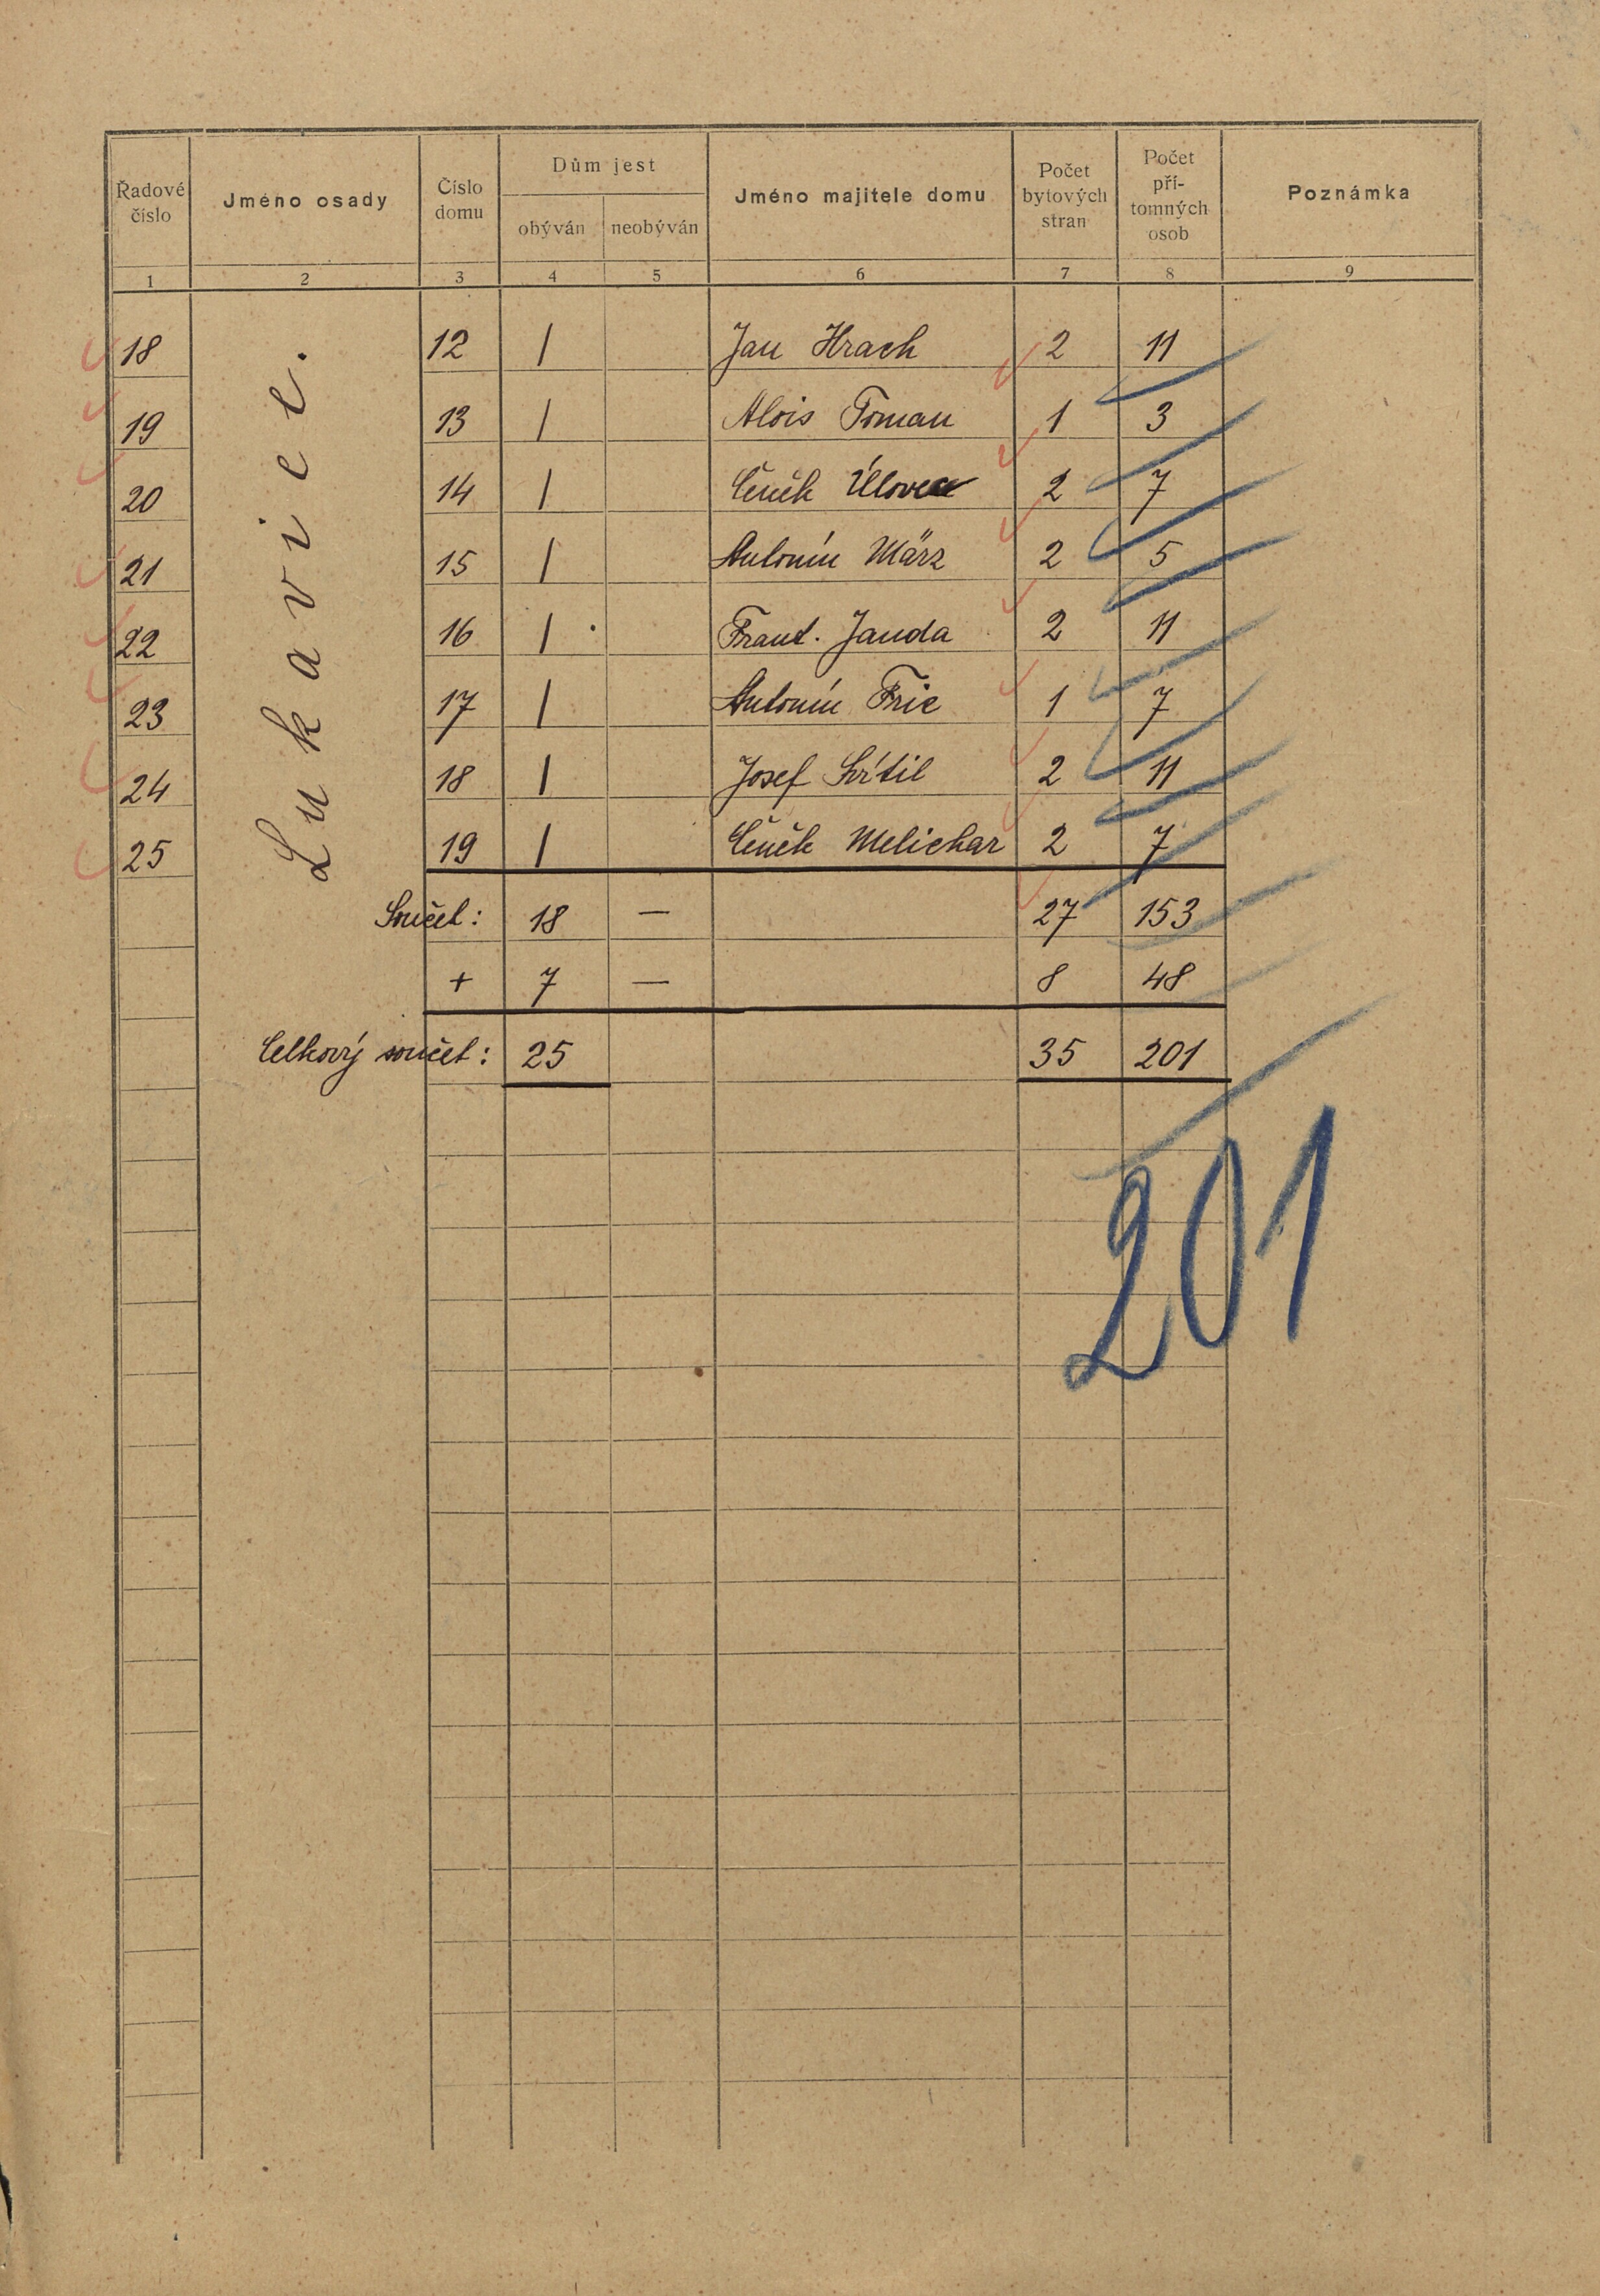 Řadové číslo
Jméno osady
Číslo domu
Dům jest
obýván
neobýván
Jméno majitele domu
Počet bytových stran
Počet pří-
tomných
osob
Poznámka
1 2 3 4 5 6 7 8 9
Lukavice.
18 12 1 Jan Hrach 2 11
19 13 1 Alois Toman 1 3
20 14 1 Čeněk 2 7
21 15 1 Antonín März 2 5
22 16 1 Frant. Janda 2 11
23 17 1 Antonín Fric 1 7
24 18 1 Josef 2 11
25 19 1 Čeněk Melichar 2 7
Součet: 18 — 27 153
+ 7 — 8 48
Celkový součet: 25 35 201
201